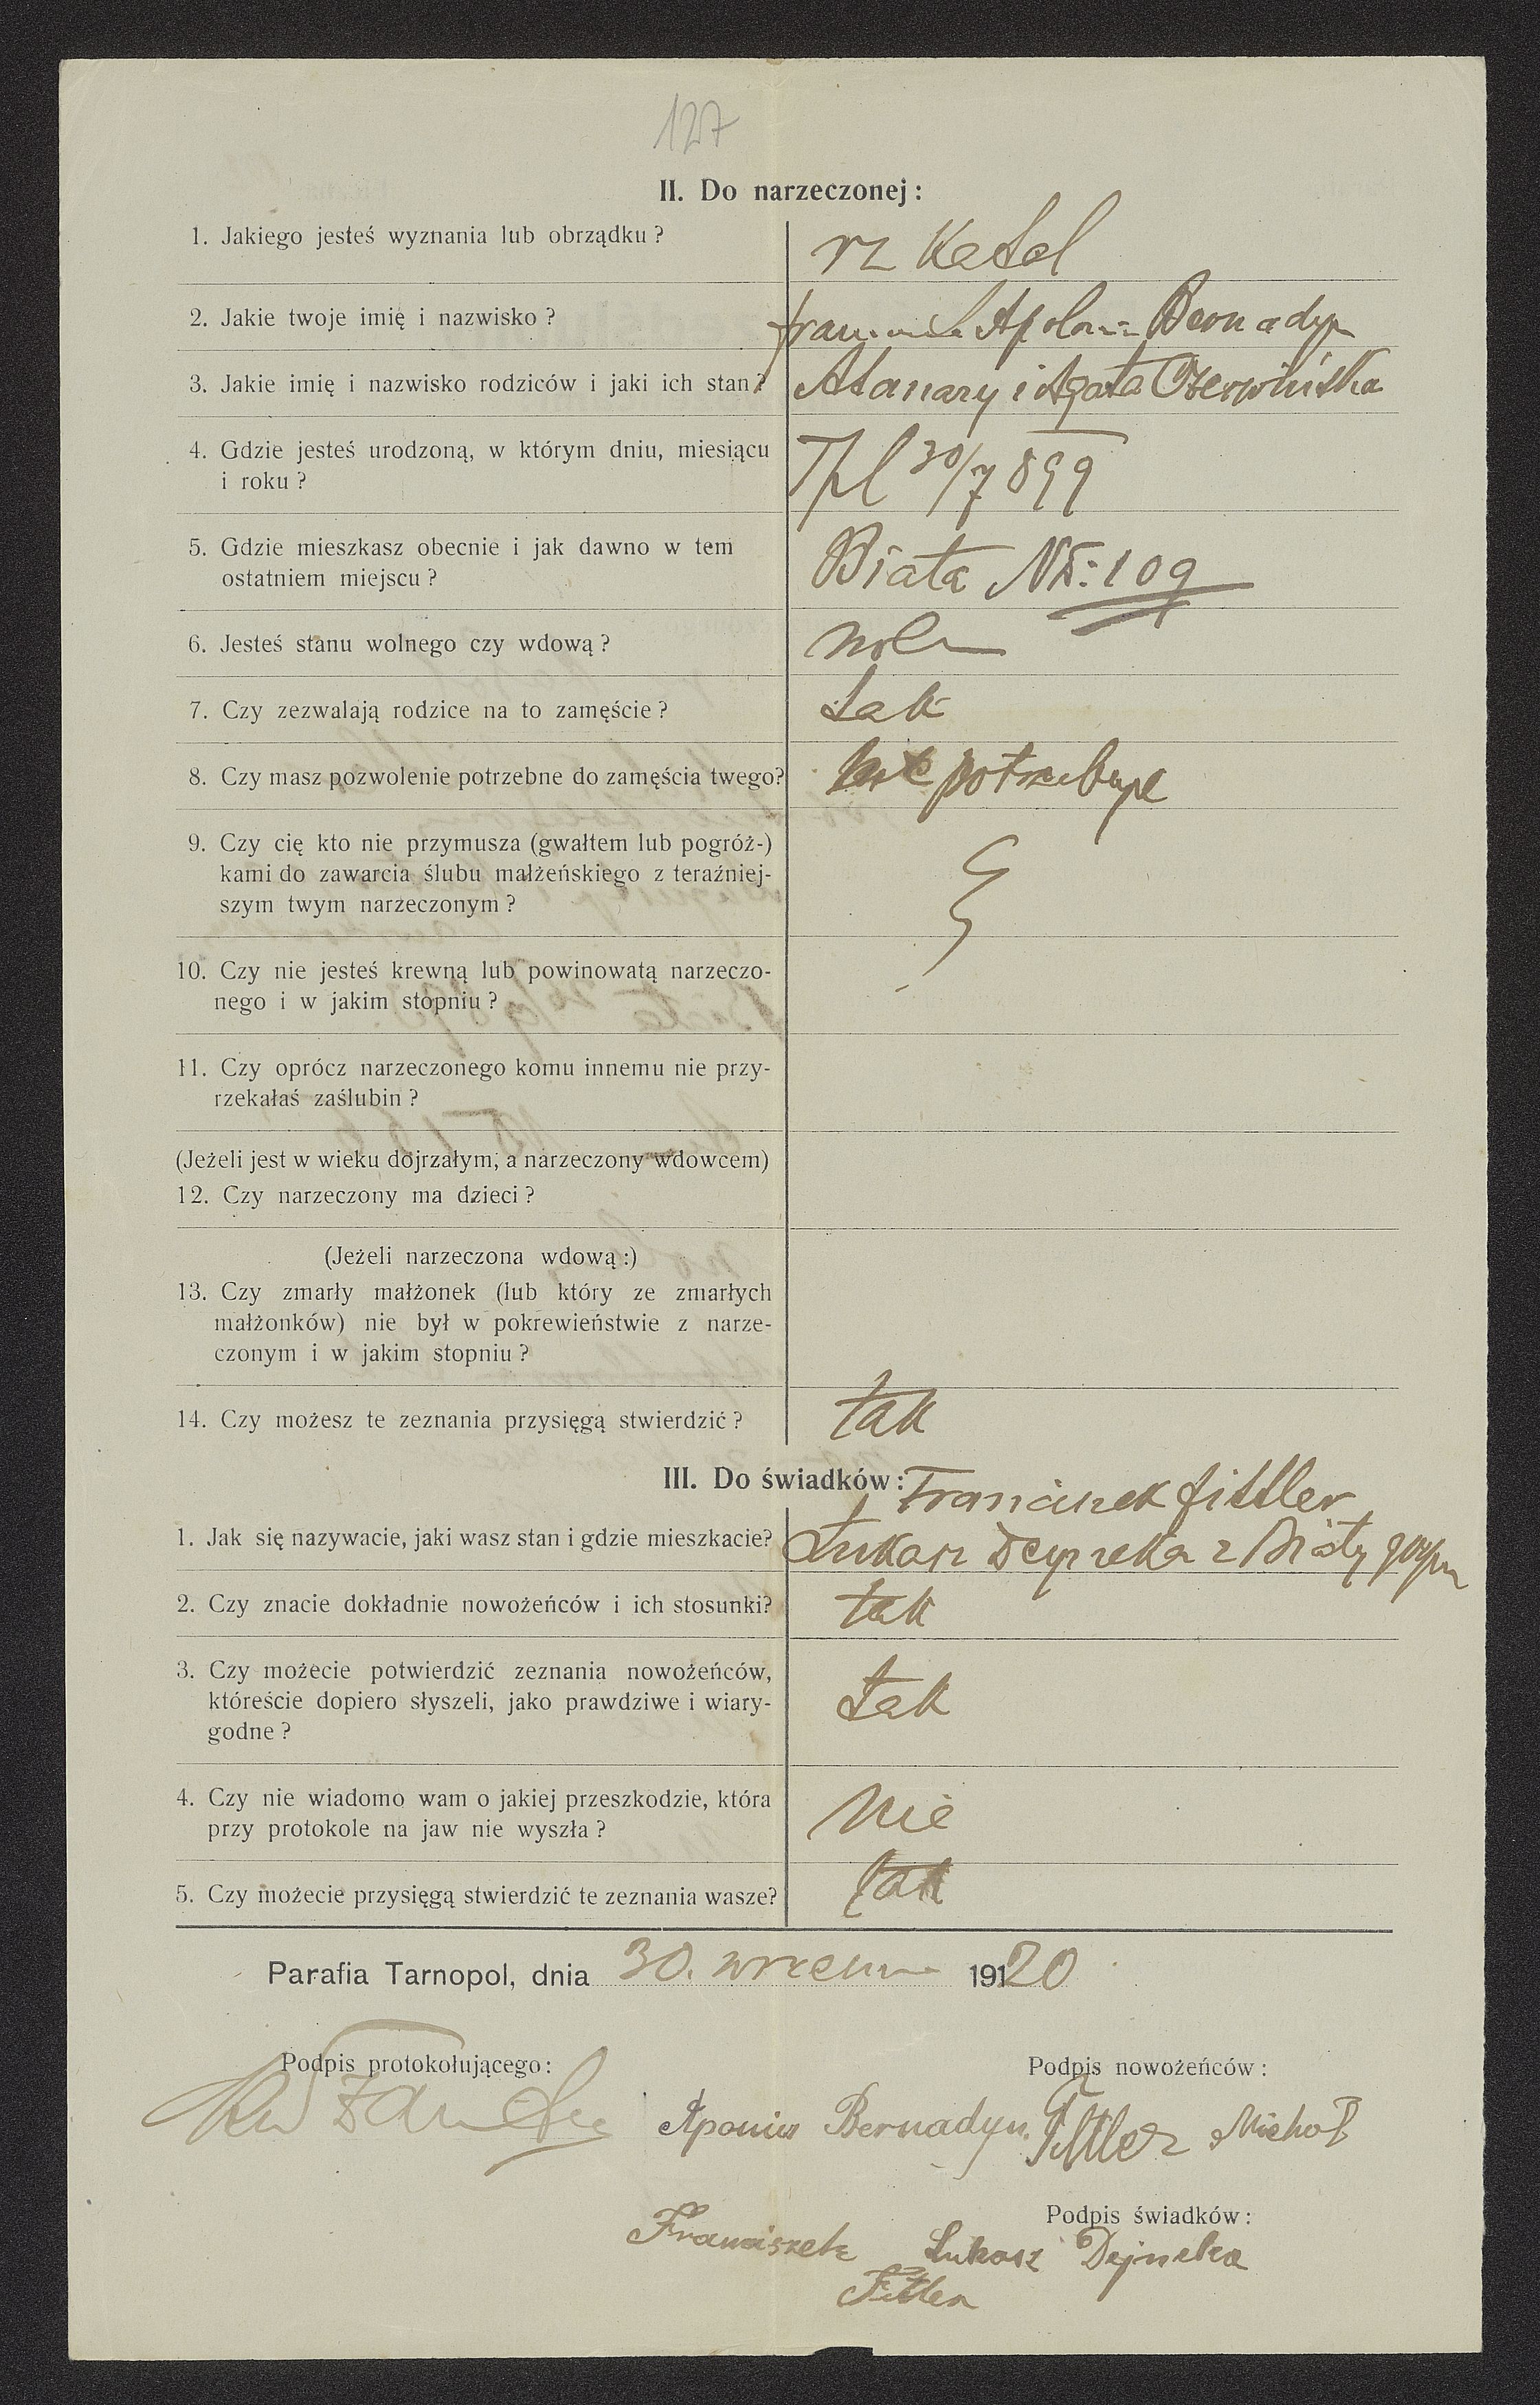 127
II. Do narzeczonej:
1. Jakiego jesteś wyznania lub obrządku?
rz Katol
2. Jakie twoje imię i nazwisko?
Apolonia Bernadyn
3. Jakie imię i nazwisko rodziców i jaki ich stan?
Atanazy i Agata Czerwińska
4. Gdzie jesteś urodzoną, w którym dniu, miesiącu
i roku?
Tpl 30/7 899
5. Gdzie mieszkasz obecnie i jak dawno w tem
ostatniem miejscu?
Biała No: 109
6. Jesteś stanu wolnego czy wdową?
woln
7. Czy zezwalają rodzice na to zamęście?
tak
8. Czy masz pozwolenie potrzebne do zamęścia twego?
nie potrzebuje
9. Czy cię kto nie przymusza (gwałtem lub pogróż-)
kami do zawarcia ślubu małżeńskiego z teraźniej-
szym twym narzeczonym?
10. Czy nie jesteś krewną lub powinowatą narzeczo-
nego i w jakim stopniu?
11. Czy oprócz narzeczonego komu innemu nie przy-
rzekałaś zaślubin?
(Jeżeli jest w wieku dojrzałym, a narzeczony wdowcem)
12. Czy narzeczony ma dzieci?
(Jeżeli narzeczona wdową:)
13. Czy zmarły małżonek (lub który ze zmarłych
małżonków) nie był w pokrewieństwie z narze-
czonym i w jakim stopniu?
14. Czy możesz te zeznania przysięgą stwierdzić?
tak
III. Do świadków:
Franciszek Fittler
1. Jak się nazywacie, jaki wasz stan i gdzie mieszkacie?
Łukasz Dejneka z Biały
2. Czy znacie dokładnie nowożeńców i ich stosunki?
tak
3. Czy możecie potwierdzić zeznania nowożeńców,
któreście dopiero słyszeli, jako prawdziwe i wiary-
godne?
tak
4. Czy nie wiadomo wam o jakiej przeszkodzie, która
przy protokole na jaw nie wyszła?
Nie
5. Czy możecie przysięgą stwierdzić te zeznania wasze?
tak
Parafia Tarnopol, dnia 30. wrzesnia 19120
Podpis protokołującego:
Podpis nowożeńców:
Aponia Bernadyn. Fittler Michał
Podpis świadków:
Franciszek Łukasz Dejneka
Fitler